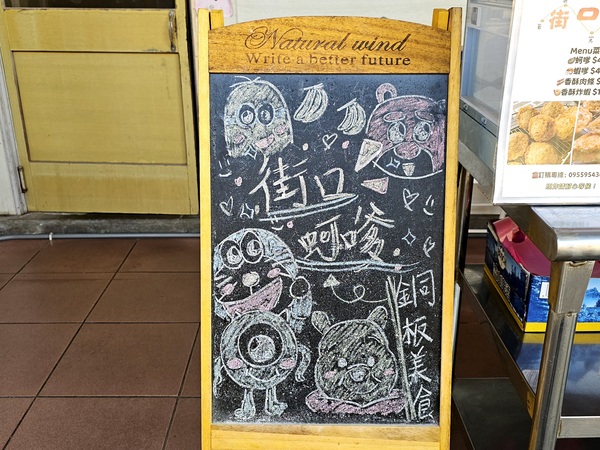 Natural wind
Write a better future
街口
蚵嗲
銅板美食
街口
Menu菜
蚵嗲 $4
蝦嗲 $4
香酥肉條 $
香酥炸蝦 $1
訂購專線：09559543